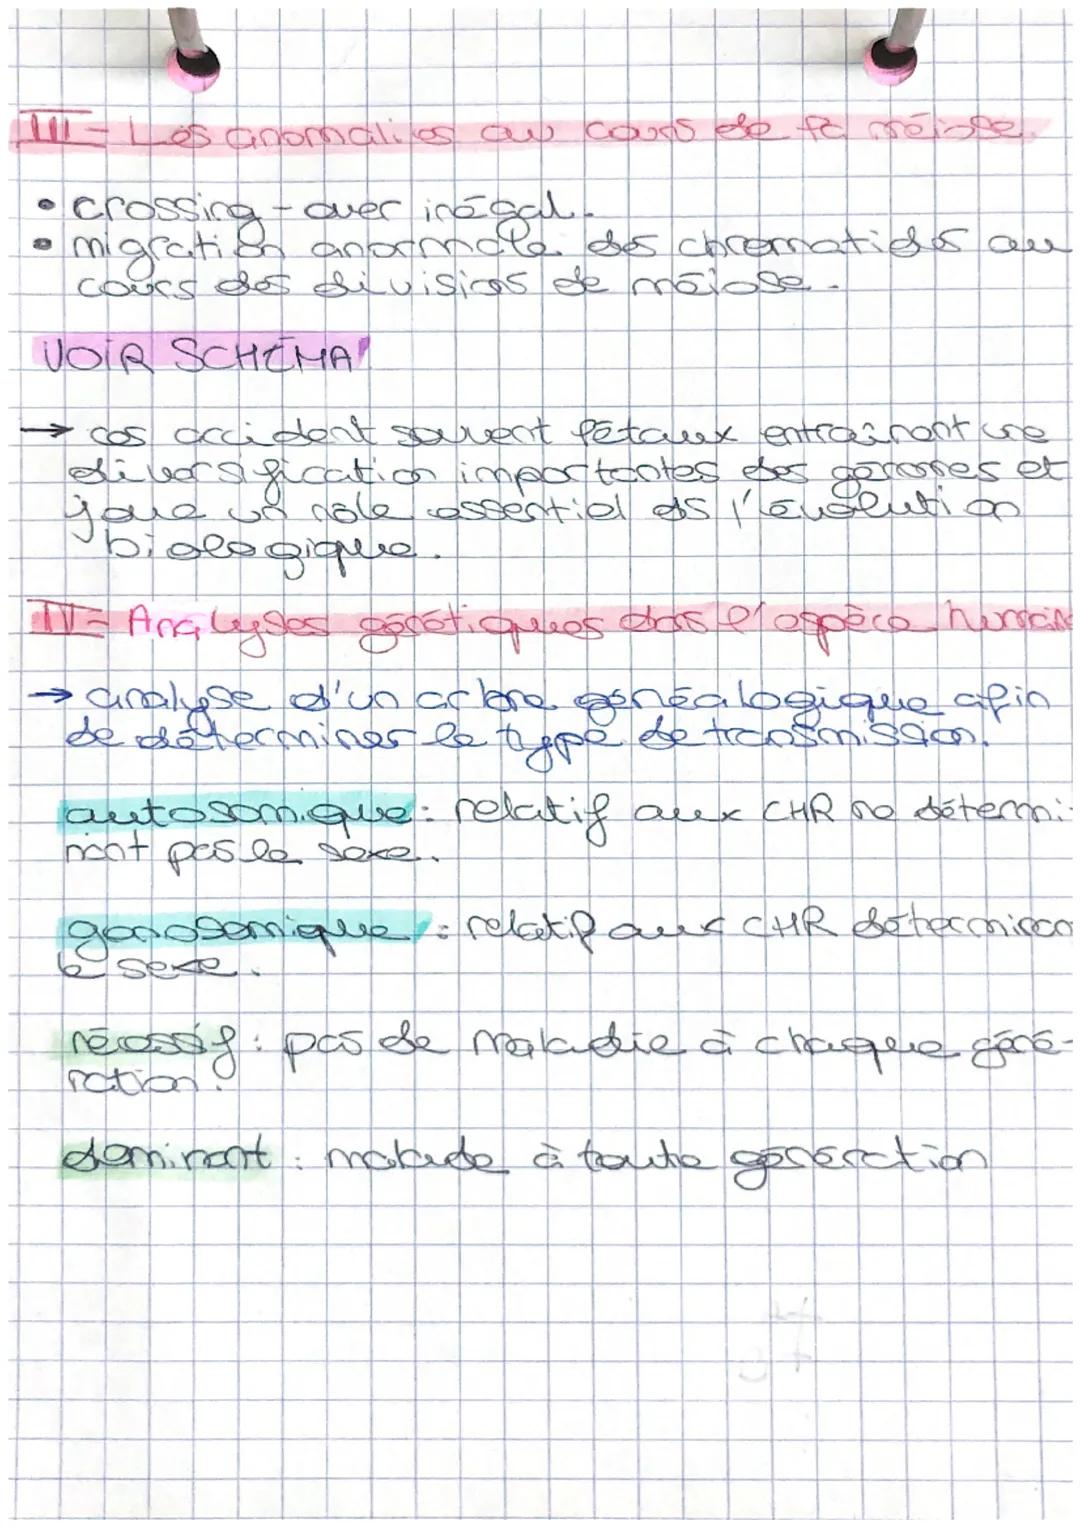 III - Les anomalies au cours de la méiose.
• crossing-over inégal.
• migration anormale des chromatides au
cours des divisions de méiose.
VOIR SCHÉMA!
→ ces accident souvent létaux entrainant une
diversification importantes des génomes et
joue un rôle essentiel ds l'évolution
biologique.
IV - Analyses génétiques dans l'espèce humaine
→ analyse d'un arbre généalogique afin
de déterminer le type de transmission.
autosomique : relatif aux CHR ne détermi-
nant pas le sexe.
gonosomique : relatif aux CHR déterminan
le sexe.
récessif : pas de maladie à chaque géné-
ration.
dominant : malade à toute génération